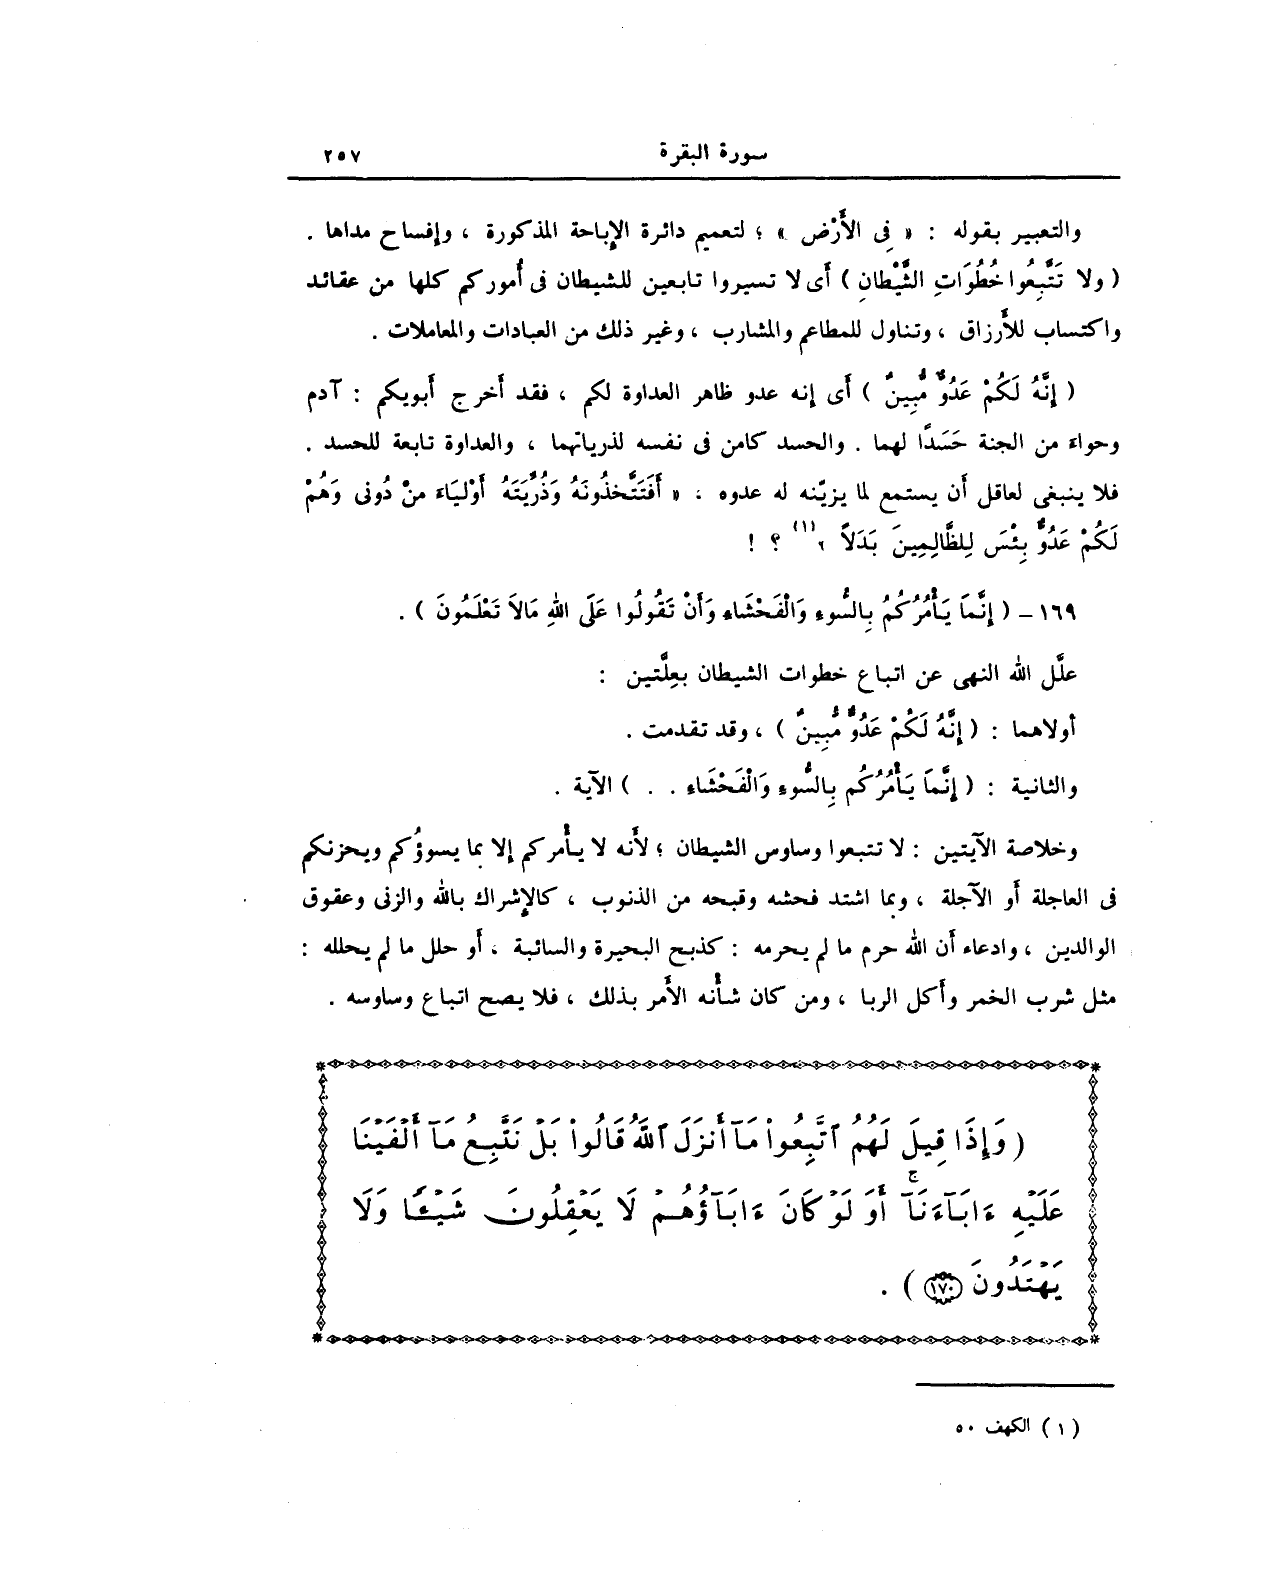 سورة البقرة ٢٥٧
والتعبير بقوله : « فِى الأَرْض » ؛ لتعميم دائرة الإباحة المذكورة ، وإفساح مداها .
( ولا تَتَّبِعُوا خُطُوَاتِ الشَّيْطانِ ) أى لا تسيروا تابعين للشيطان فى أُموركم كلها من عقائد
واكتساب للأَرزاق ، وتناول للمطاعم والمشارب ، وغير ذلك من العبادات والمعاملات .
( إِنَّهُ لَكُمْ عَدُوٌّ مُّبِينٌ ) أَى إنه عدو ظاهر العداوة لكم ، فقد أَخرج أَبويكم : آدم
وحواء من الجنة حَسَدًا لهما . والحسد كامن فى نفسه لذرياتهما ، والعداوة تابعة للحسد .
فلا ينبغى لعاقل أَن يستمع لما يزيّنه له عدوه ، « أَفَتَتَّخِذُونَهُ وَذُرِّيَّتَهُ أَوْلِيَاءَ مِنْ دُونِى وَهُمْ
لَكُمْ عَدُوٌّ بِئْسَ لِلظَّالِمِينَ بَدَلاً » (١) ؟ !
١٦٩ – ( إِنَّمَا يَأْمُرُكُمُ بِالسُّوءِ وَالْفَحْشَاءِ وَأَنْ تَقُولُوا عَلَى اللهِ مَالاَ تَعْلَمُونَ ) .
علَّل الله النهى عن اتباع خطوات الشيطان بعِلَّتين :
أولاهما : ( إِنَّهُ لَكُمْ عَدُوٌّ مُّبِينٌ ) ، وقد تقدمت .
والثانية : ( إِنَّمَا يَأْمُرُكُم بِالسُّوءِ وَالْفَحْشَاءِ . . ) الآية .
وخلاصة الآيتين : لا تتبعوا وساوس الشيطان ؛ لأَنه لا يأْمركم إلا بما يسووُكم ويحزنكم
فى العاجلة أَو الآجلة ، وبما اشتد فحشه وقبحه من الذنوب ، كالإشراك بالله والزنى وعقوق
الوالدين ، وادعاء أَن الله حرم ما لم يحرمه : كذبح البحيرة والسائبة ، أَو حلل ما لم يحلله :
مثل شرب الخمر وأَكل الربا ، ومن كان شأْنه الأَمر بذلك ، فلا يصح اتباع وساوسه .
( وَإِذَا قِيلَ لَهُمُ ٱتَّبِعُوا۟ مَآ أَنزَلَ ٱللَّهُ قَالُوا۟ بَلْ نَتَّبِعُ مَآ أَلْفَيْنَا
عَلَيْهِ ءَابَآءَنَآ ۚ أَوَ لَوْ كَانَ ءَابَآؤُهُمْ لَا يَعْقِلُونَ شَيْـًٔا وَلَا
يَهْتَدُونَ ١٧٠ ) .
( ١ ) الكهف ٥٠